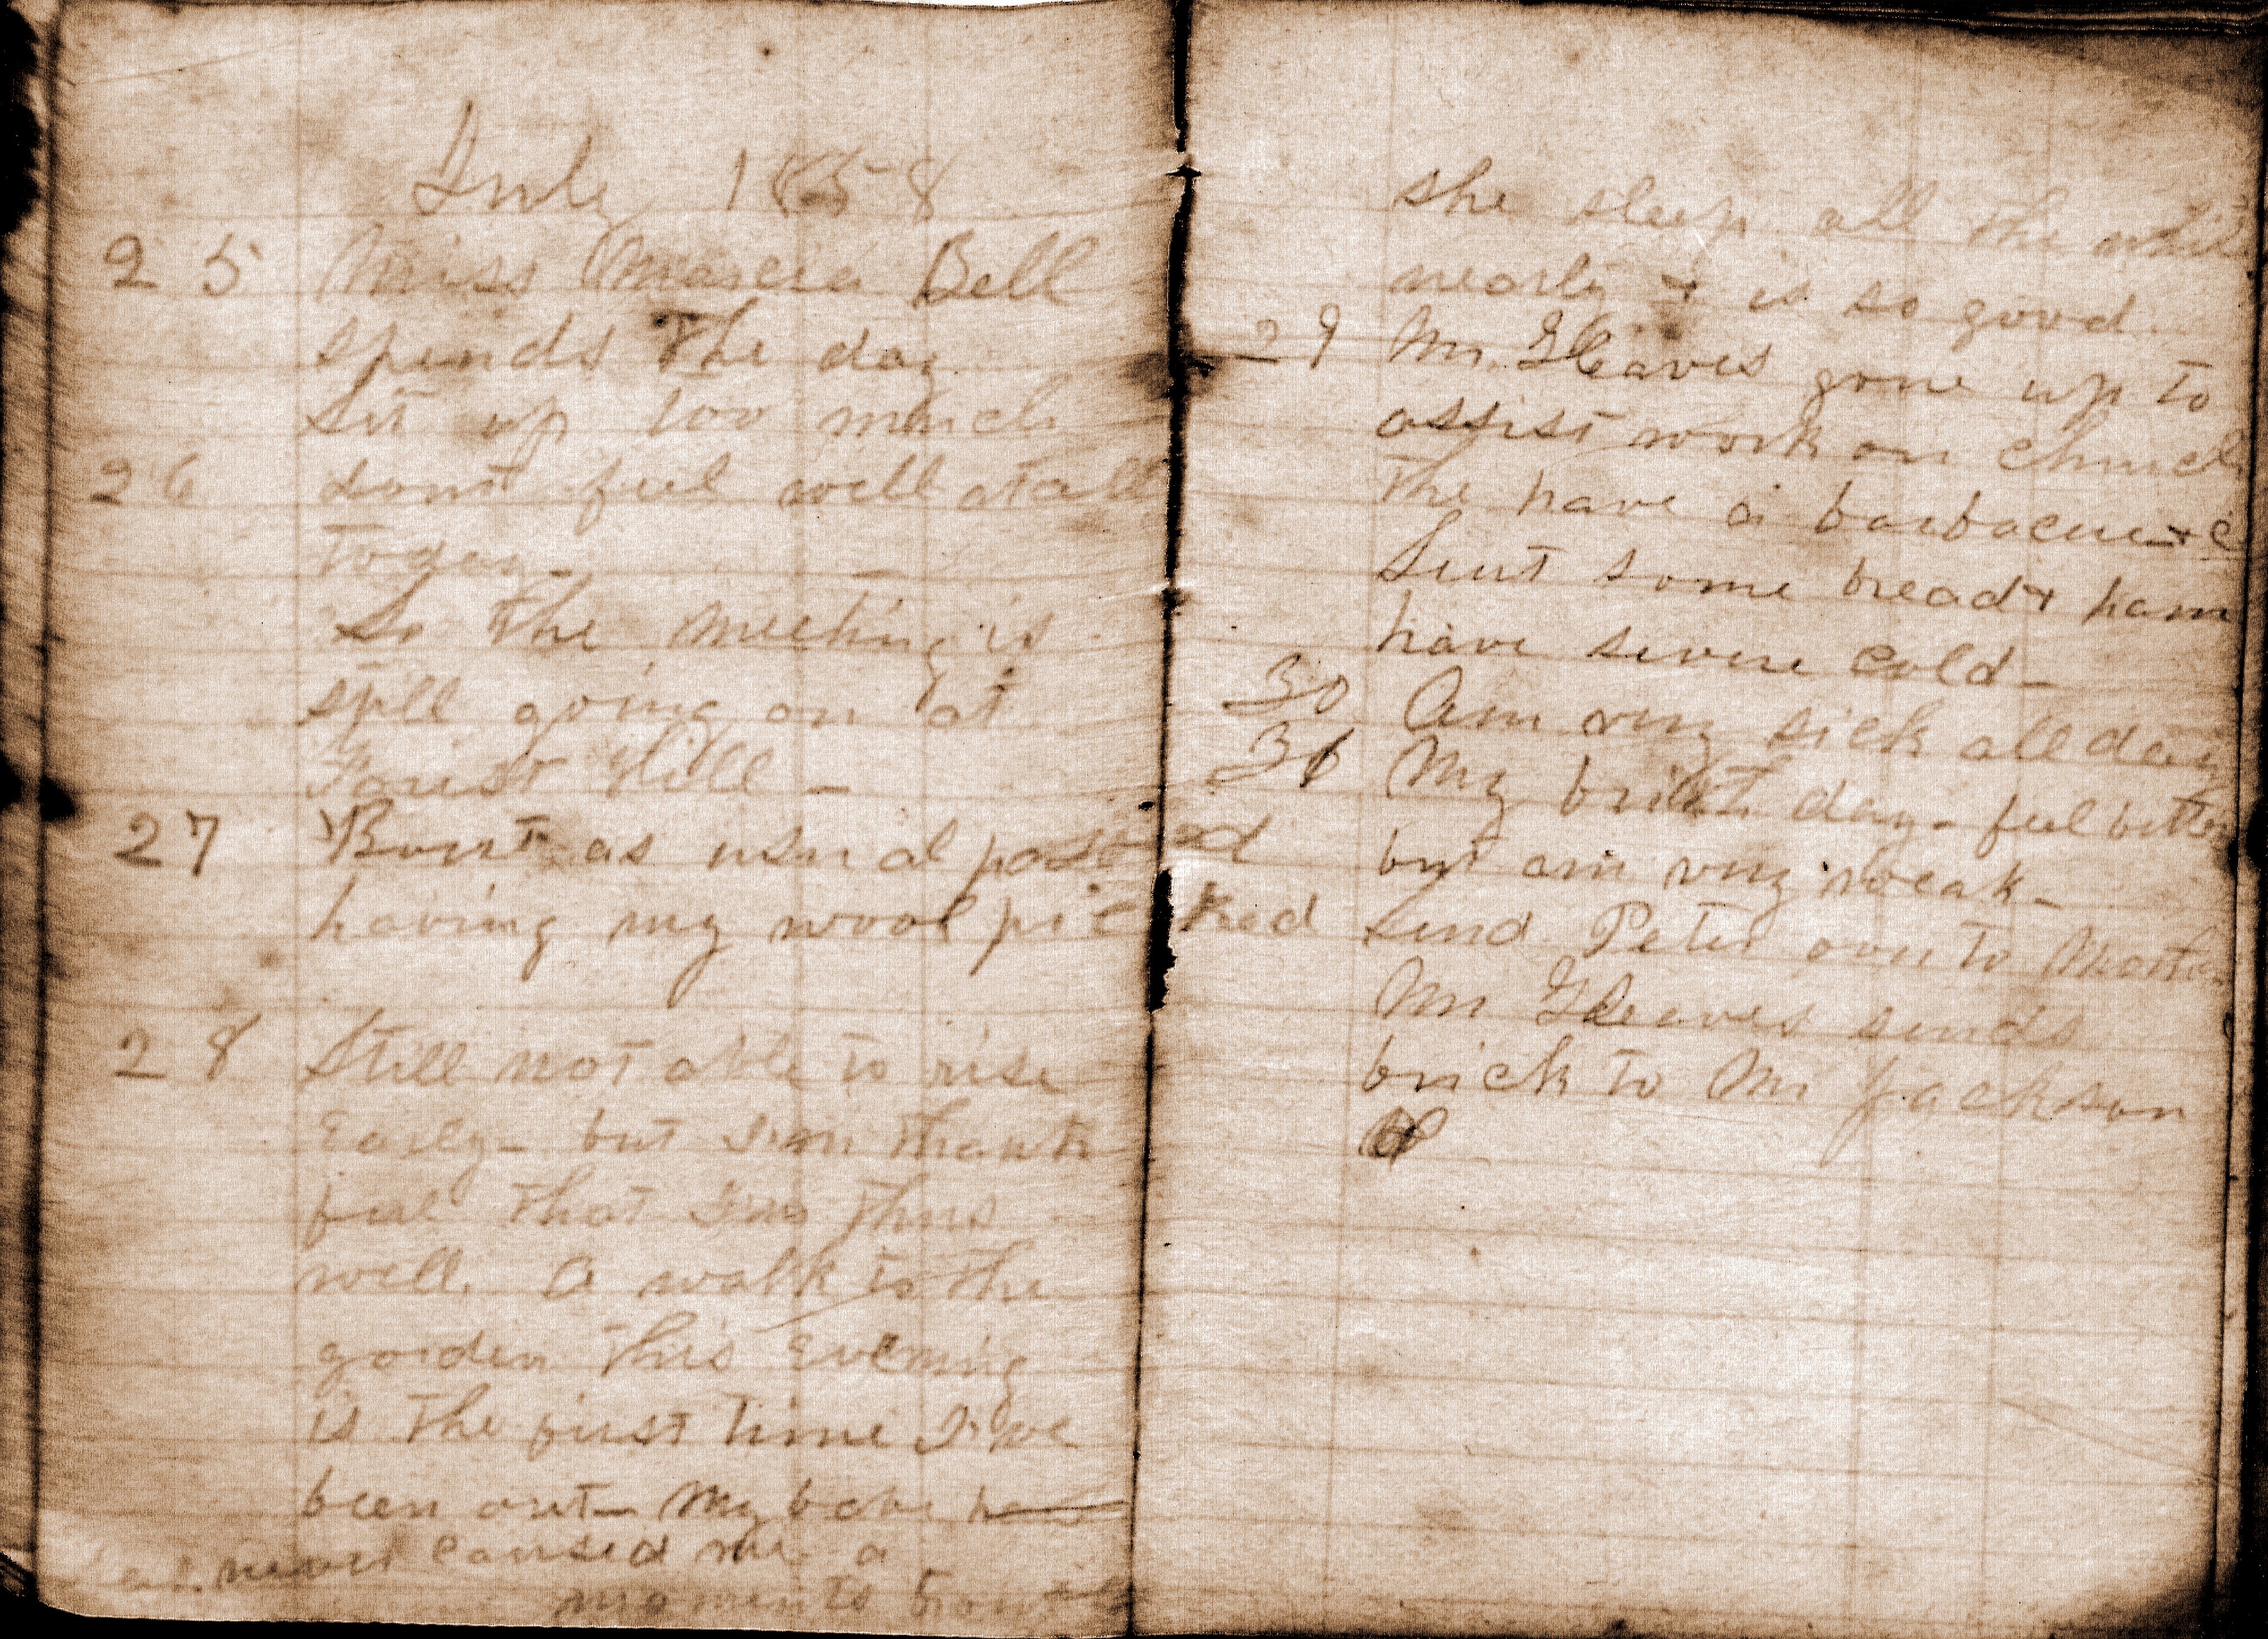 July 1858
25 Miss Marcia Bell
spends the day
Sit up too much
26 dont feel well atall
today
So the meeting is
still going on at
Forist Hill -
27 as usual
having my wool picked
28 Still not able to rise
Early - but I'm thank
ful that I'm thus
well. A walk to the
garden this Evening
is the first time I've
been out - My babe has
never caused me a
moments
she sleep all the while
nearly & is so good
29 Mr. Gleaves gone up to
assist work on church
the have a barbacue &c
Sent some bread & ham
have severe cold -
30 Am very sick all day
31 My day - feel better
but am very weak -
Send Peter over to
Mr Gleaves sends
brick to Mr Jackson